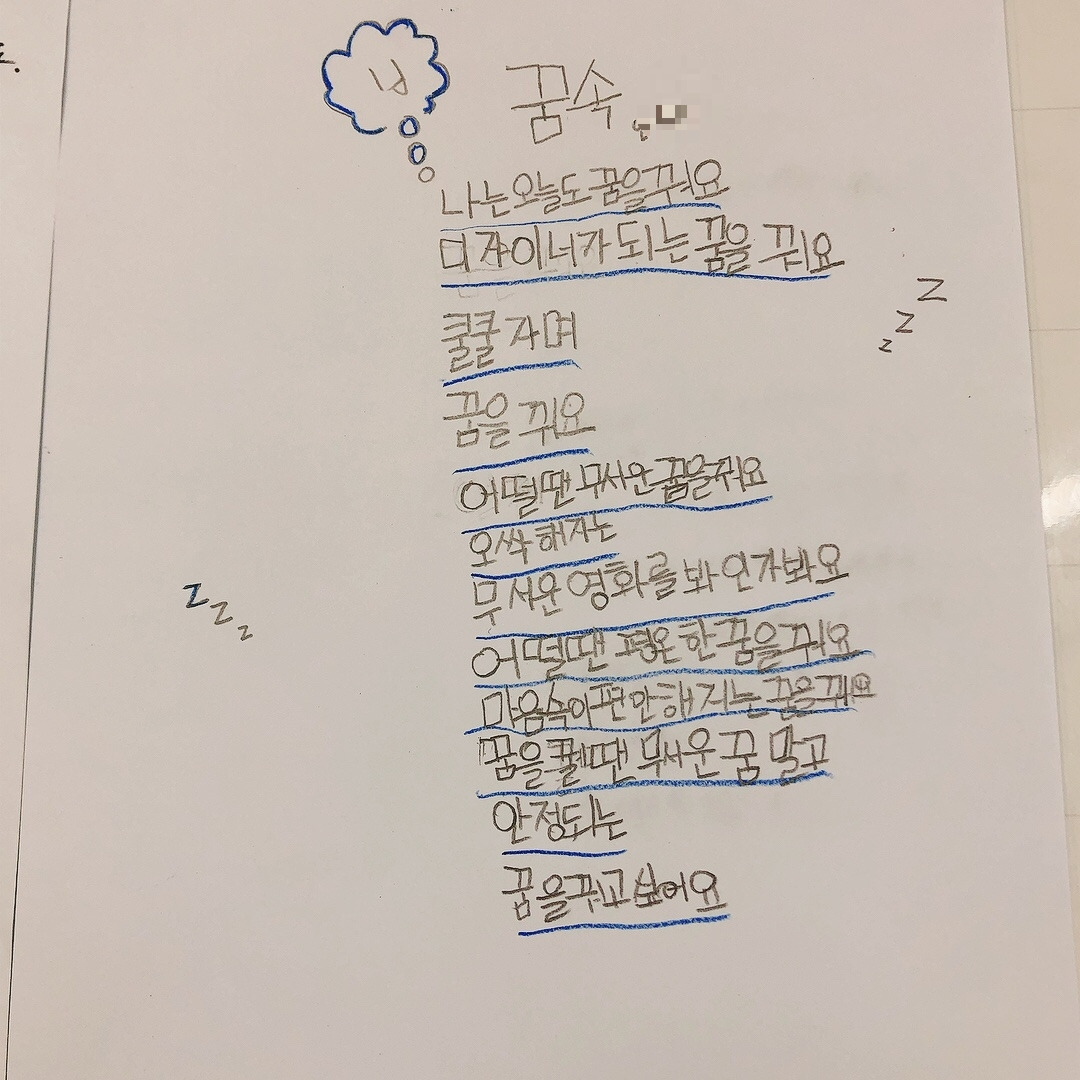 꿈속
나는오늘도 꿈을꿔요
디자이너가 되는 꿈을 꿔요
쿨쿨 자며
꿈을 꿔요
어떨땐 무서운 꿈을꿔요
오싹 해지는
무서운 영화를 봐 인가봐요
어떨땐 평온 한 꿈을꿔요
마음속이편안해 지는 꿈을꿔요
꿈을 꿀땐 무서운 꿈 말고
안정되는
꿈을꾸고싶어요
z
z
z
z
z
z